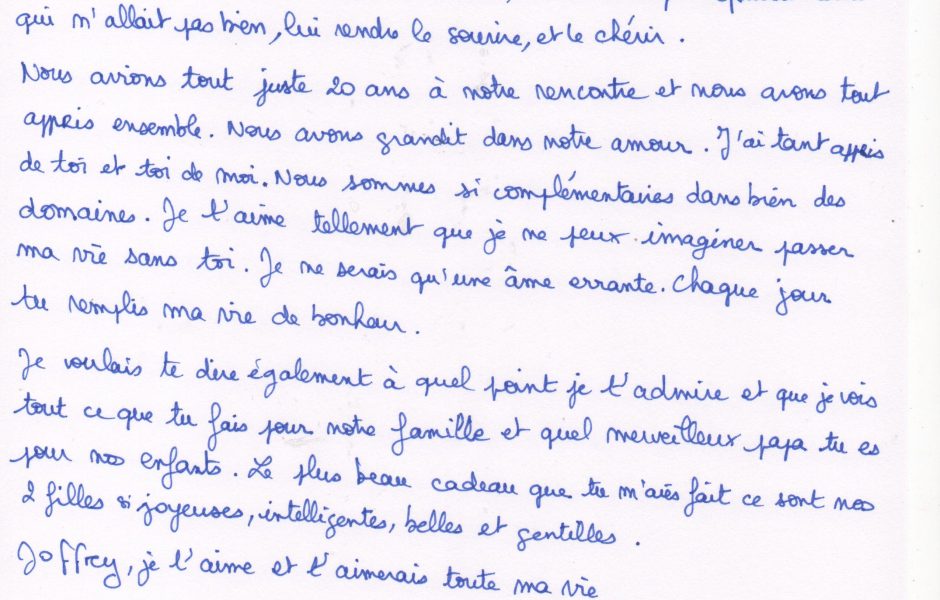 qui m'allait pas bien, lui rendre le sourire, et le chérir.
Nous avions tout juste 20 ans à notre rencontre et nous avons tout
appris ensemble. Nous avons grandit dans notre amour. J'ai tant appris
de toi et toi de moi. Nous sommes si complémentaires dans bien des
domaines. Je t'aime tellement que je ne peux imaginer passer
ma vie sans toi. Je ne serais qu'une âme errante. Chaque jour
tu remplis ma vie de bonheur.
Je voulais te dire également à quel point je t'admire et que je vois
tout ce que tu fais pour notre famille et quel merveilleux papa tu es
pour nos enfants. Le plus beau cadeau que tu m'aies fait ce sont nos
2 filles si joyeuses, intelligentes, belles et gentilles.
Joffrey, je t'aime et t'aimerais toute ma vie